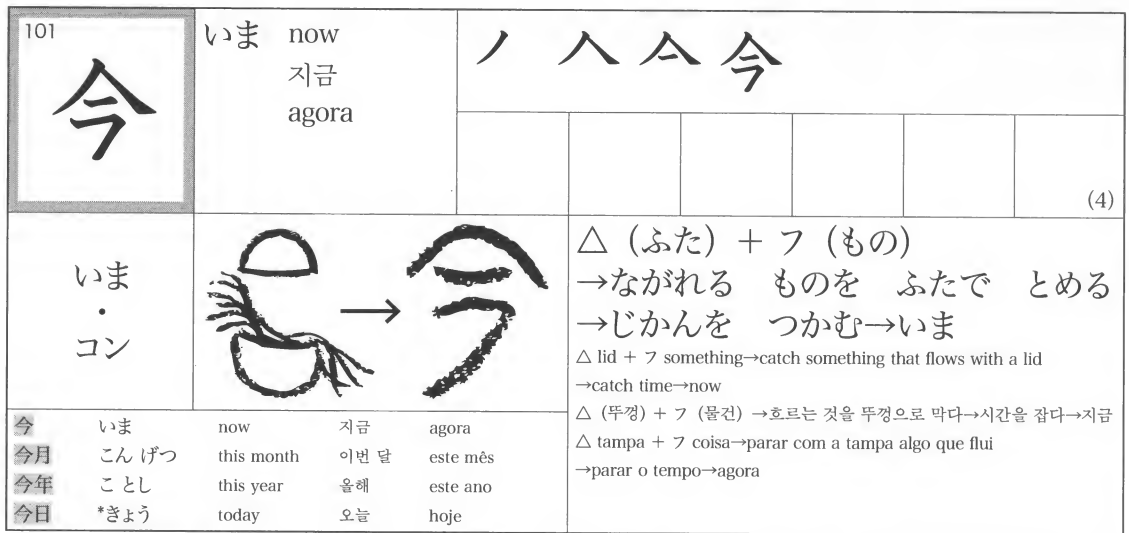 101
今
いま now
지금
agora
ノ 人 亼 今
(4)
いま
・
コン
△（ふた）＋ フ（もの）
→ながれる ものを ふたで とめる
→じかんを つかむ→いま
△ lid + フ something→catch something that flows with a lid
→catch time→now
△ (뚜껑) + フ (물건) →흐르는 것을 뚜껑으로 막다→시간을 잡다→지금
△ tampa + フ coisa→parar com a tampa algo que flui
→parar o tempo→agora
今 いま now 지금 agora
今月 こん げつ this month 이번 달 este mês
今年 こ とし this year 올해 este ano
今日 *きょう today 오늘 hoje